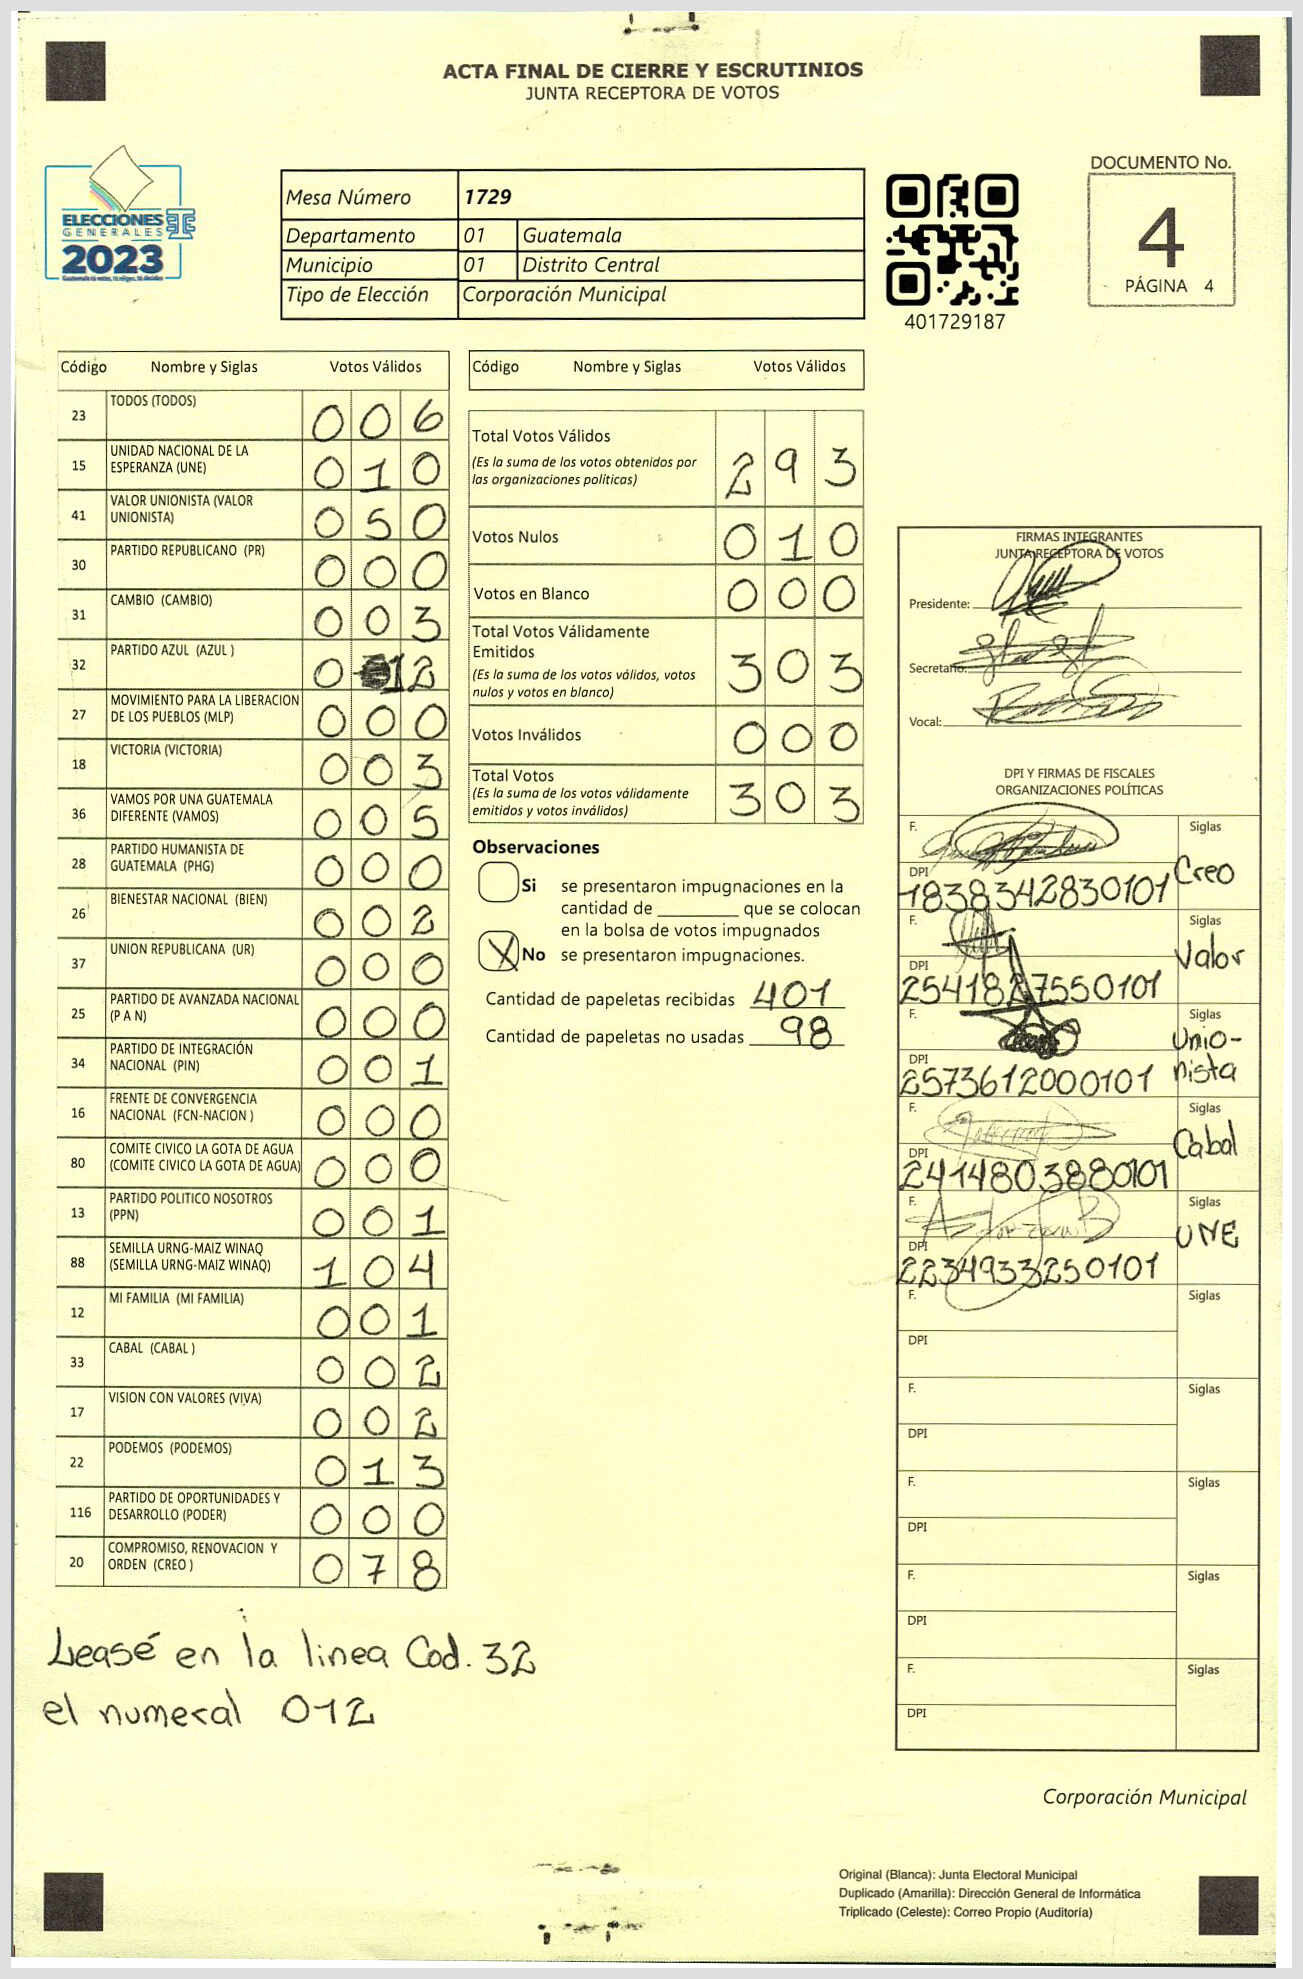 ACTA FINAL DE CIERRE Y ESCRUTINIOS
JUNTA RECEPTORA DE VOTOS
ELECCIONES
GENERALES
2023
Mesa Número 1729
Departamento 01 Guatemala
Municipio 01 Distrito Central
Tipo de Elección Corporación Municipal
401729187
DOCUMENTO No.
4
PÁGINA 4
Código Nombre y Siglas Votos Válidos
23 TODOS (TODOS) 0 0 6
15 UNIDAD NACIONAL DE LA
ESPERANZA (UNE) 0 1 0
41 VALOR UNIONISTA (VALOR
UNIONISTA) 0 5 0
30 PARTIDO REPUBLICANO (PR) 0 0 0
31 CAMBIO (CAMBIO) 0 0 3
32 PARTIDO AZUL (AZUL ) 0 1 2
27 MOVIMIENTO PARA LA LIBERACION
DE LOS PUEBLOS (MLP) 0 0 0
18 VICTORIA (VICTORIA) 0 0 3
36 VAMOS POR UNA GUATEMALA
DIFERENTE (VAMOS) 0 0 5
28 PARTIDO HUMANISTA DE
GUATEMALA (PHG) 0 0 0
26 BIENESTAR NACIONAL (BIEN) 0 0 2
37 UNION REPUBLICANA (UR) 0 0 0
25 PARTIDO DE AVANZADA NACIONAL
(P A N) 0 0 0
34 PARTIDO DE INTEGRACIÓN
NACIONAL (PIN) 0 0 1
16 FRENTE DE CONVERGENCIA
NACIONAL (FCN-NACION ) 0 0 0
80 COMITE CIVICO LA GOTA DE AGUA
(COMITE CIVICO LA GOTA DE AGUA) 0 0 0
13 PARTIDO POLITICO NOSOTROS
(PPN) 0 0 1
88 SEMILLA URNG-MAIZ WINAQ
(SEMILLA URNG-MAIZ WINAQ) 1 0 4
12 MI FAMILIA (MI FAMILIA) 0 0 1
33 CABAL (CABAL ) 0 0 2
17 VISION CON VALORES (VIVA) 0 0 2
22 PODEMOS (PODEMOS) 0 1 3
116 PARTIDO DE OPORTUNIDADES Y
DESARROLLO (PODER) 0 0 0
20 COMPROMISO, RENOVACION Y
ORDEN (CREO ) 0 7 8
Leasé en la linea Cod. 32
el numeral 012
Código Nombre y Siglas Votos Válidos
Total Votos Válidos
(Es la suma de los votos obtenidos por
las organizaciones políticas) 2 9 3
Votos Nulos 0 1 0
Votos en Blanco 0 0 0
Total Votos Válidamente
Emitidos
(Es la suma de los votos válidos, votos
nulos y votos en blanco) 3 0 3
Votos Inválidos 0 0 0
Total Votos
(Es la suma de los votos válidamente
emitidos y votos inválidos) 3 0 3
Observaciones
Si se presentaron impugnaciones en la
cantidad de ________ que se colocan
en la bolsa de votos impugnados
X No se presentaron impugnaciones.
Cantidad de papeletas recibidas 401
Cantidad de papeletas no usadas 98
FIRMAS INTEGRANTES
JUNTA RECEPTORA DE VOTOS
Presidente:
Secretario:
Vocal:
DPI Y FIRMAS DE FISCALES
ORGANIZACIONES POLÍTICAS
F. Siglas
Creo
DPI
1838342830101
F. Siglas
Valor
DPI
2541827550101
F. Siglas
Unio-
nista
DPI
2573612000101
F. Siglas
Cabal
DPI
2414803880101
F. Siglas
UNE
DPI
2234933250101
F. Siglas
DPI
F. Siglas
DPI
F. Siglas
DPI
F. Siglas
DPI
F. Siglas
DPI
Corporación Municipal
Original (Blanca): Junta Electoral Municipal
Duplicado (Amarilla): Dirección General de Informática
Triplicado (Celeste): Correo Propio (Auditoría)